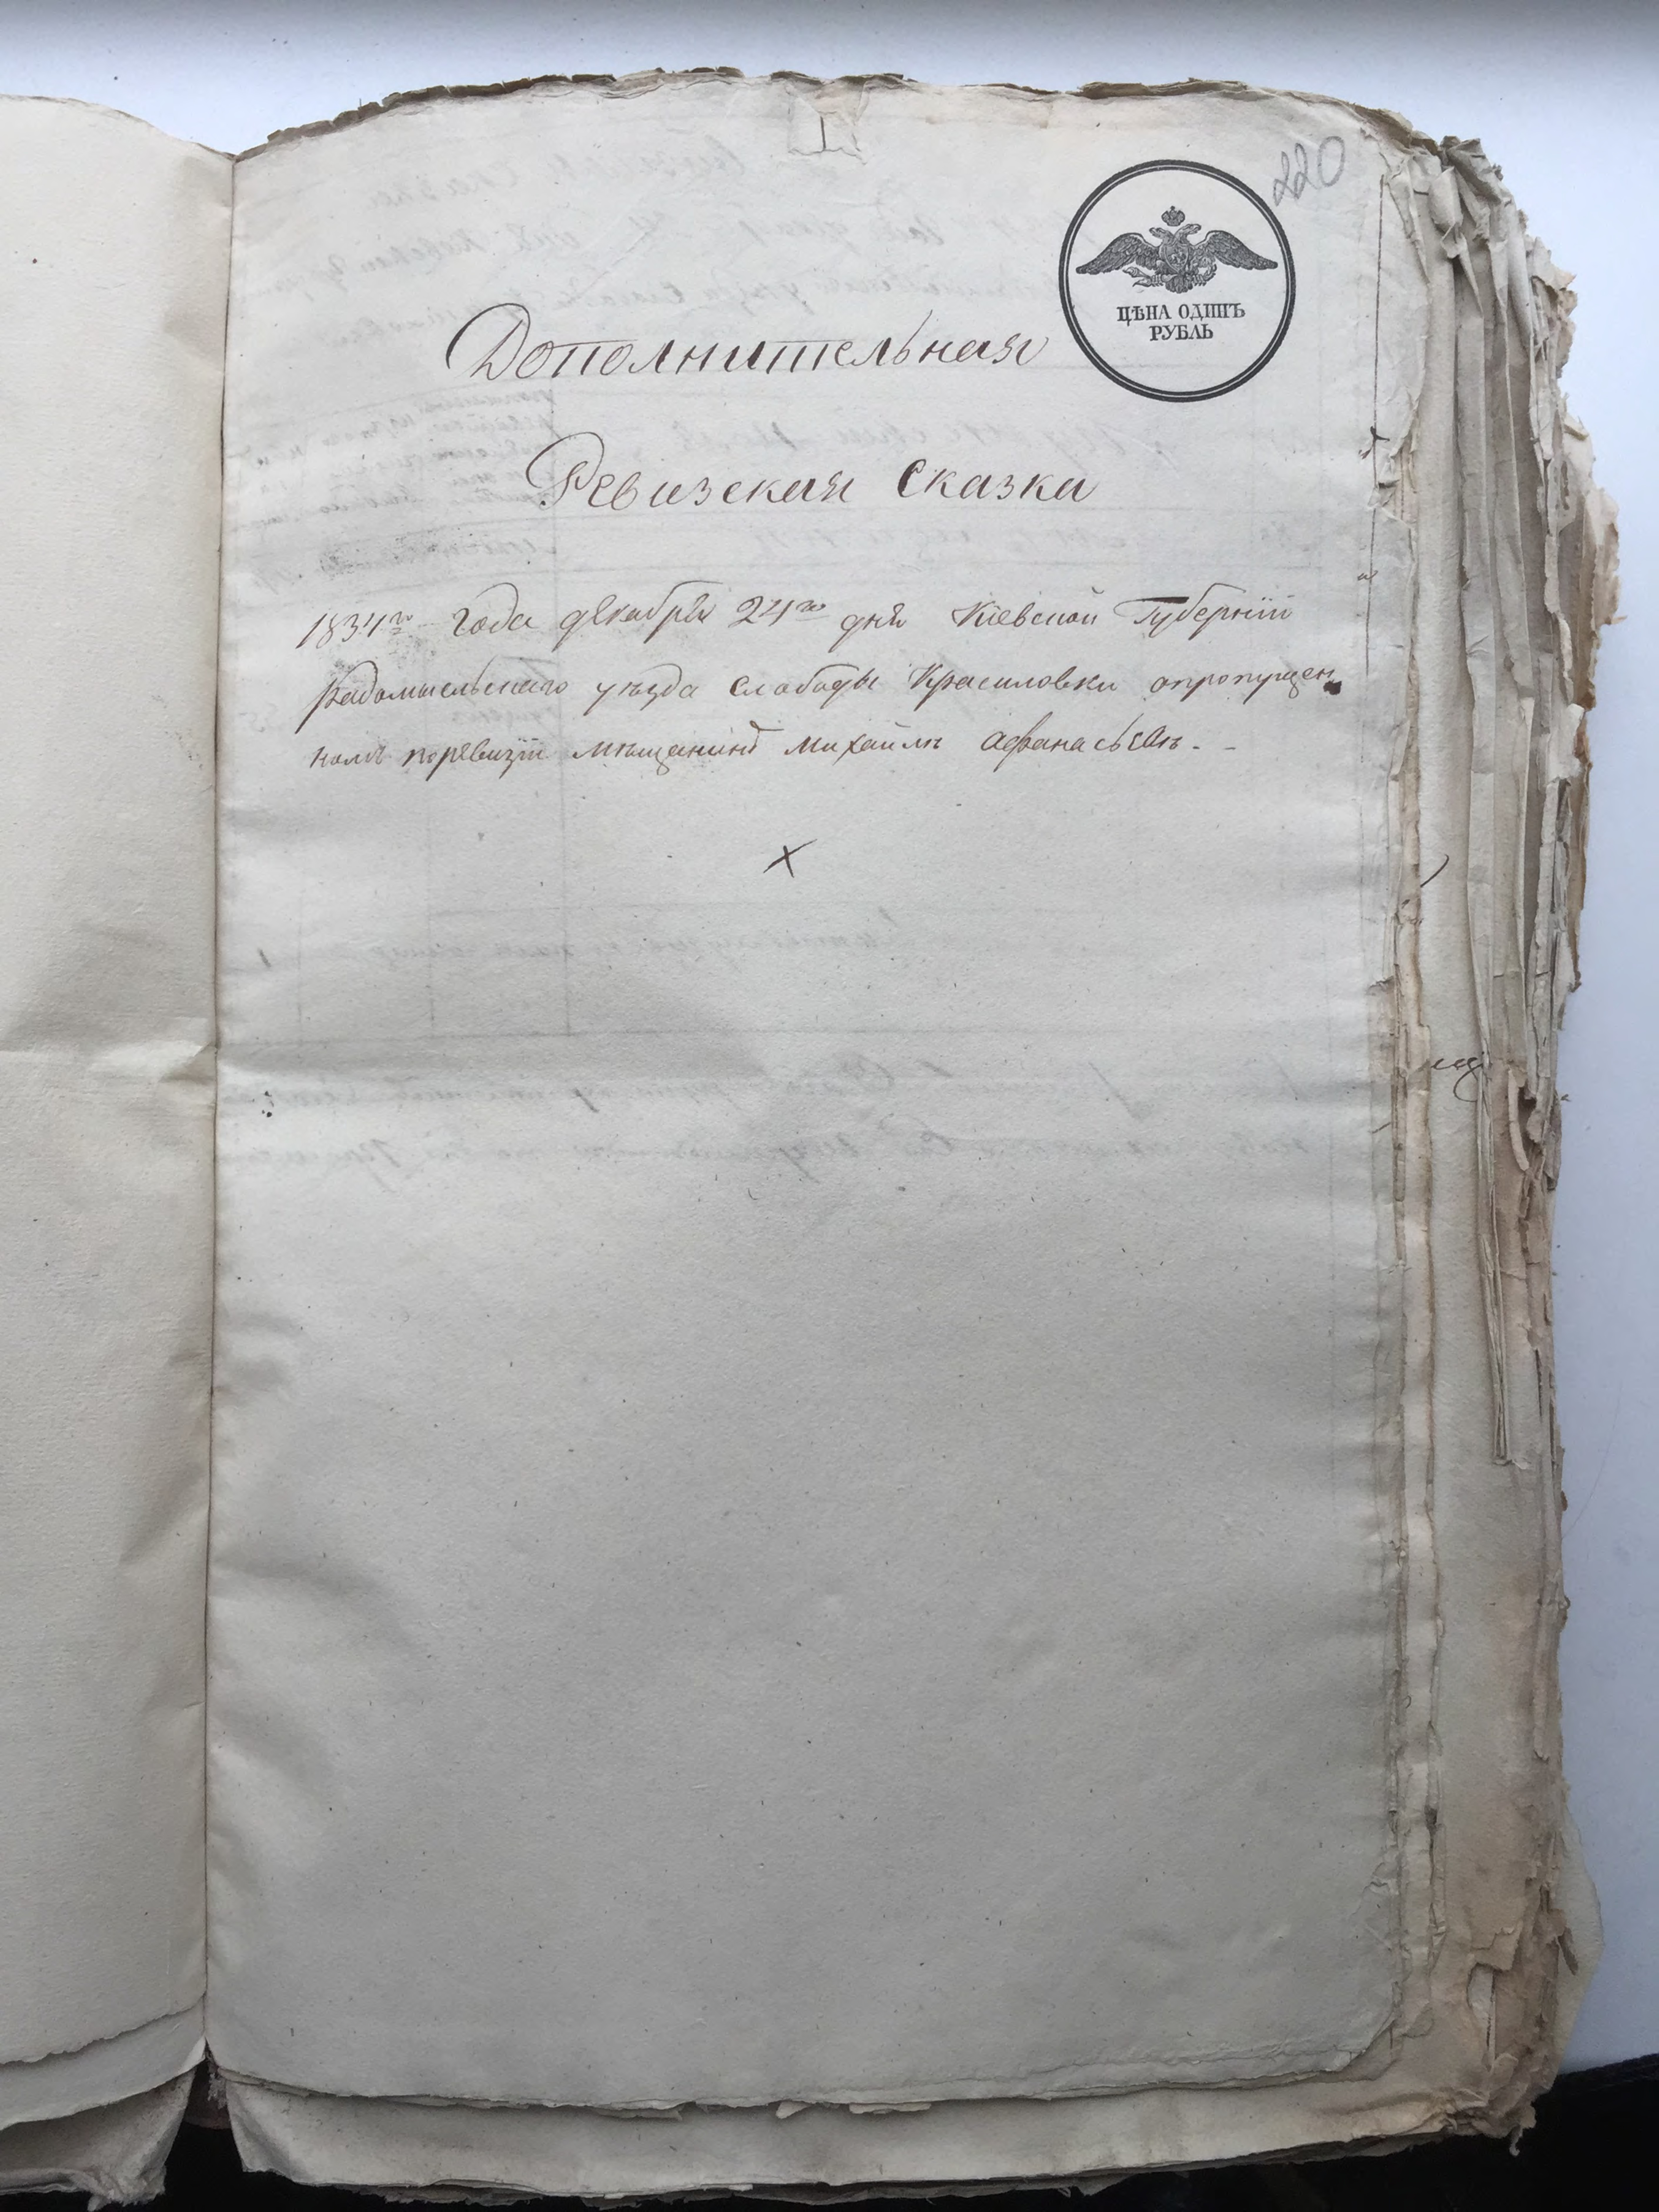 220
ЦѢНА ОДИНЪ
РУБЛЬ
Дополнительная
Ревизская Сказка
1834го года декабря 24го дня Кіевской Губерніи
Радомысльскаго уѣзда слабоды Красиловки опропущен
номъ поревизіи мѣщанинѣ Михайлѣ Афанасьевѣ. -